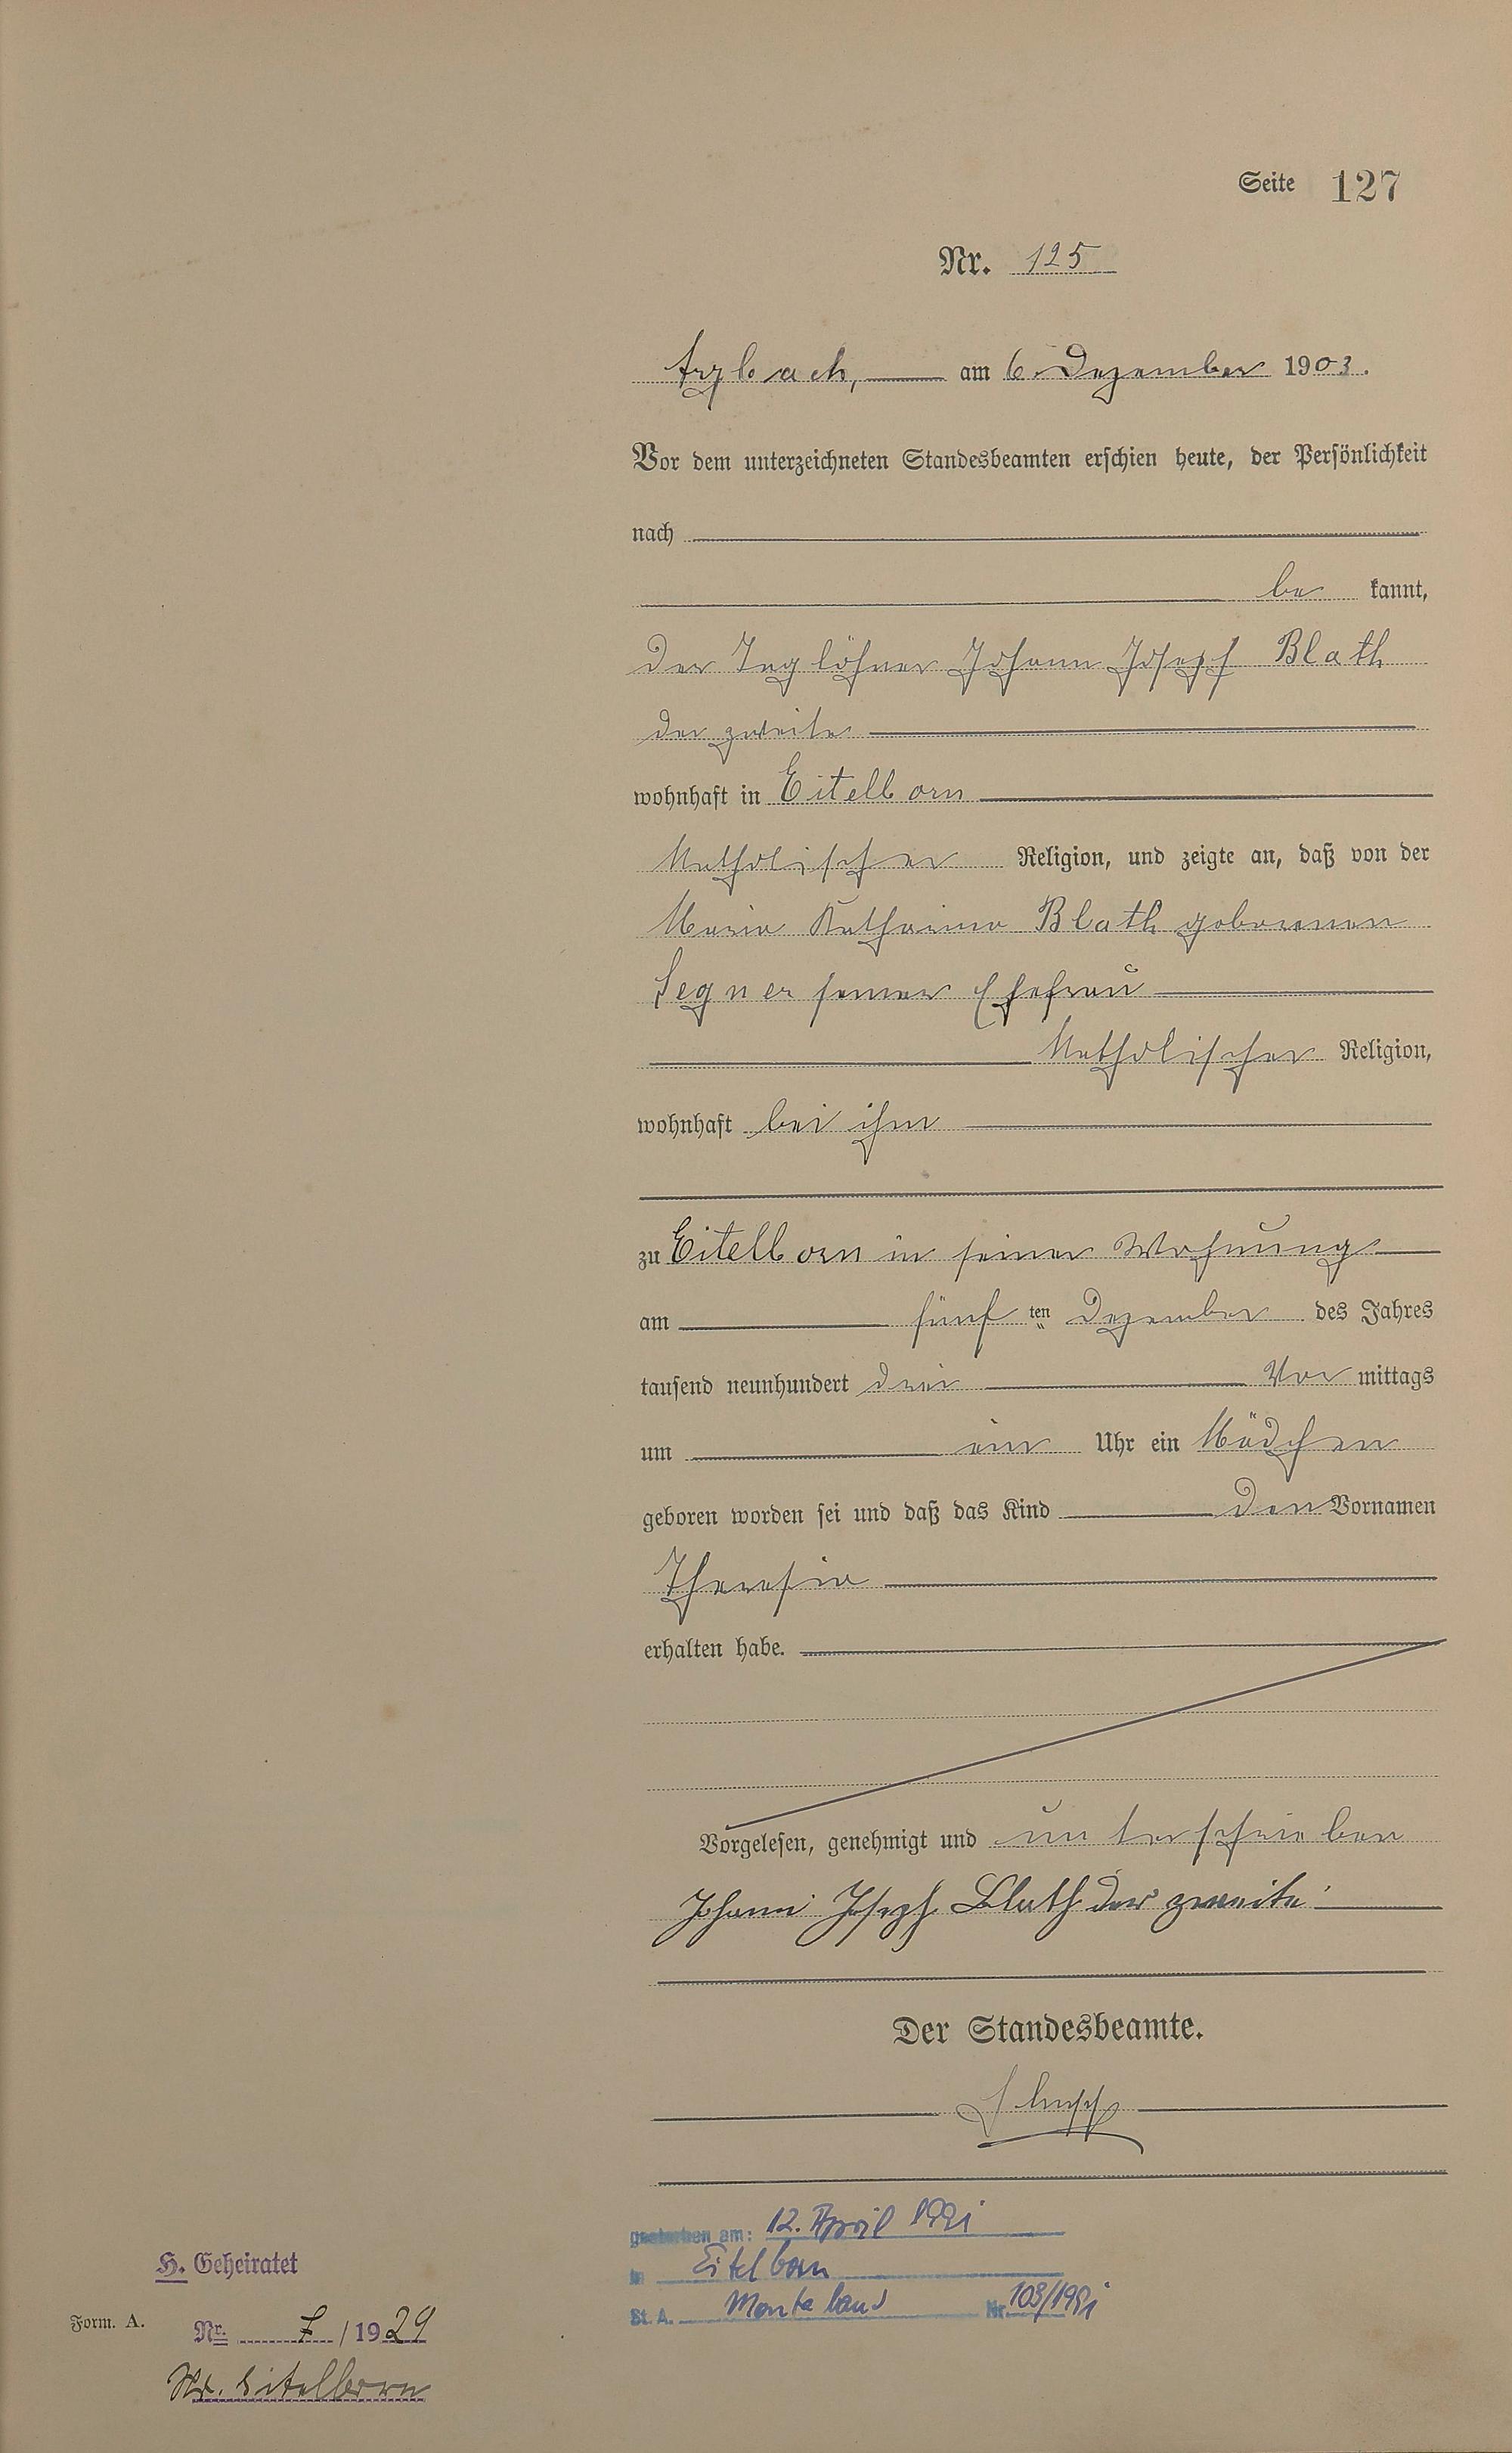 Seite 127
Nr. 125
Arzbach, am 6. Dezember 1903.
Vor dem unterzeichneten Standesbeamten erschien heute, der Persönlichkeit
nach
be kannt,
der Taglöhner Johann Josepf Blath
der zweite
wohnhaft in Eitelborn
katholischer Religion, und zeigte an, daß von der
Maria Katharina Blath geborenen
Segner seiner Ehefrau
katholischer Religion,
wohnhaft bei ihm
zu Eitelborn in seiner Wohnung
am fünf ten Dezember des Jahres
tausend neunhundert drei Vor mittags
um ein Uhr ein Mädchen
geboren worden sei und daß das Kind den Vornamen
Theresia
erhalten habe.
Vorgelesen, genehmigt und unterschrieben
Johann Joseph Blath der zweite
Der Standesbeamte.
gestorben am: 12. April 1991
in Eitelborn
St. A. Montabaur Nr. 109/1991
H. Geheiratet
Form. A.
Nr. 7 / 1929
St. Eitelborn